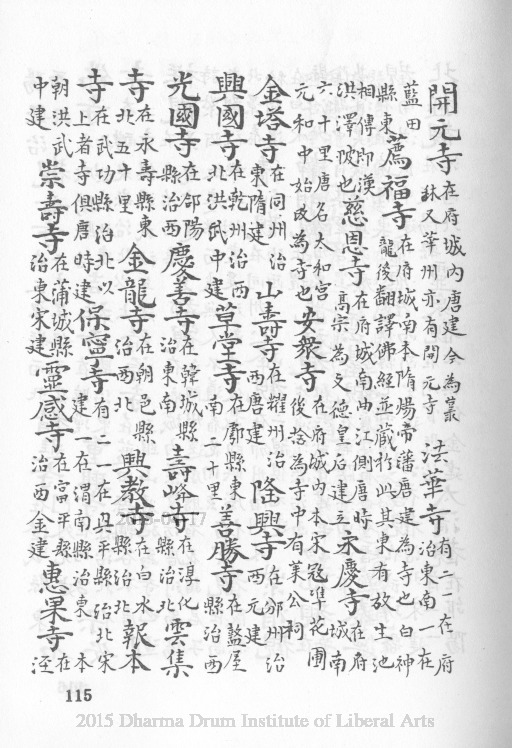 開元寺在府城內唐建今為叢林又華州亦有開元寺 法華寺有二一在府治東南一在
藍田縣東 薦福寺在府城南本隋煬帝藩唐建為寺也白神龍後翻譯佛經並藏於此其東有放生池
相傳即漢洪澤陂也 慈恩寺在府城南曲江側唐時高宗為文德皇后建立 永慶寺在府城南
六十里唐名太和宮元和中始改為寺也 安眾寺在府城內本宋寇準花圃後捨為寺中有萊公祠
金塔寺在同州治東隋建 山壽寺在耀州治西唐建 隆興寺在邠州治西元建
興國寺在乾州治西北洪武中建 草堂寺在鄠縣東南二十里 善勝寺在盩厔縣治西
光國寺在郃陽縣治西 慶善寺在韓城縣治東南 壽峰寺在淳化縣治北 雲集
寺在永壽縣東北五十里 金龍寺在朝邑縣治西北 興教寺在白水縣治北 報本
寺在武功縣治北以上者寺俱唐時建 保寧寺有二一在興平縣治北宋建一在渭南縣治東本
朝洪武中建 崇壽寺在蒲城縣治東宋建 靈感寺在富平縣治西金建 惠果寺在涇
115
2015 Dharma Drum Institute of Liberal Arts